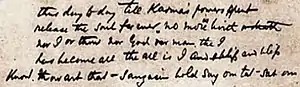 thus day by day till Karma's powers spent
release the soul forever. no more birth
nor I or thou nor God or man, the I
has become all the all is I and bliss
Know. thou art that - Sanyasin bold say om tat sat om